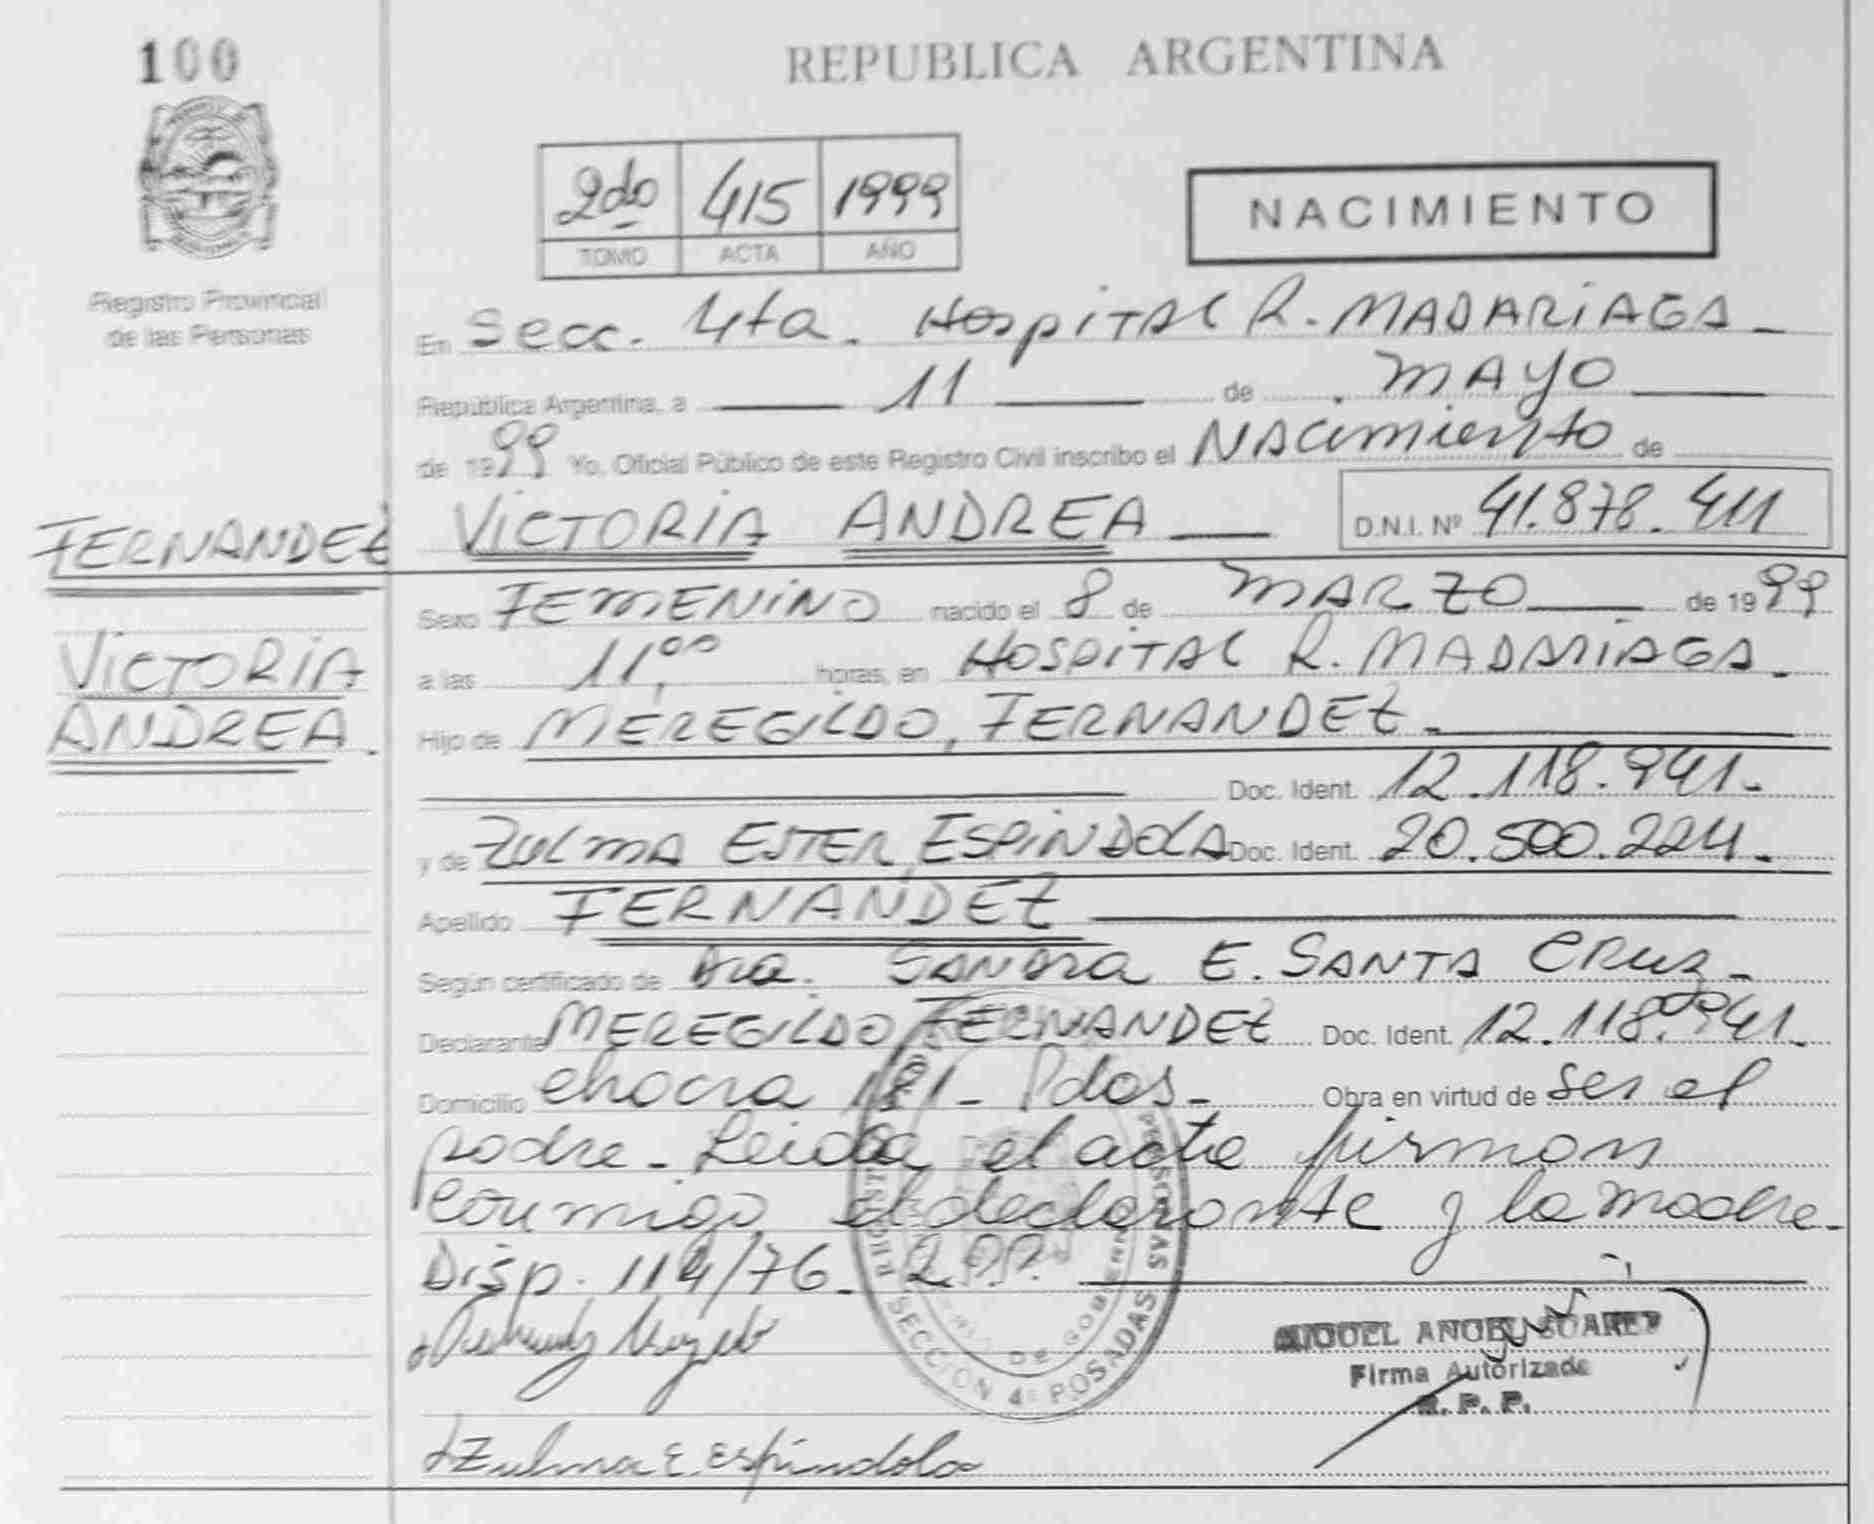 100
REPUBLICA ARGENTINA
2do 415 1999
TOMO ACTA AÑO
NACIMIENTO
Registro Provincial
de las Personas
En Secc. 4ta. Hospital R. MADARIAGA -
República Argentina, a 11 de MAYO
de 1999 Yo, Oficial Público de este Registro Civil inscribo el NACimiento de
FERNANDEZ VICTORIA ANDREA D.N.I. Nº 41.878.411
Sexo FEMENINO nacido el 8 de MARZO de 1999
VICTORIA
a las 11,00 horas, en HOSPITAL R. MADARIAGA -
ANDREA.
Hijo de MEREGILDO, FERNANDEZ -
Doc. Ident. 12.118.941.-
y de ZULMA ESTER, ESPINDOLA Doc. Ident. 20.500.224.-
Apellido FERNANDEZ
Según certificado de Dra. SANDRA E. SANTA CRUZ -
Declarante MEREGILDO FERNANDEZ Doc. Ident. 12.118.941.-
Domicilio chacra 181 - Pdas - Obra en virtud de ser el
padre - Leida el acta firman
conmigo el declarante y la madre -
Disp. 114/76 - R.P.P.
SECCION 4ª POSADAS
DE GOBIERNO
MIGUEL ANGEL SUAREZ
Firma Autorizada
R. P. P.
Zulma E. Espindola